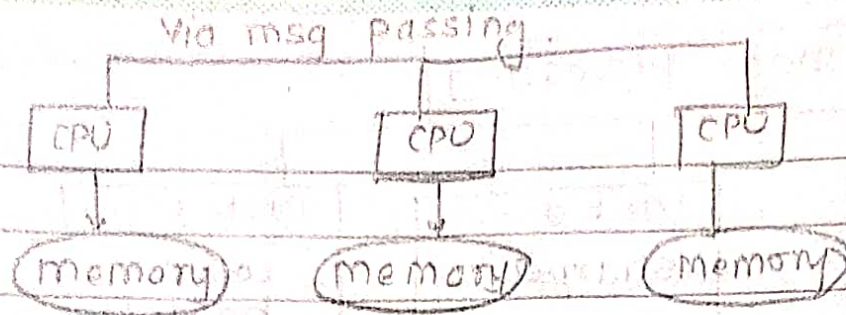 Via msg passing.
CPU CPU CPU
memory memory memory